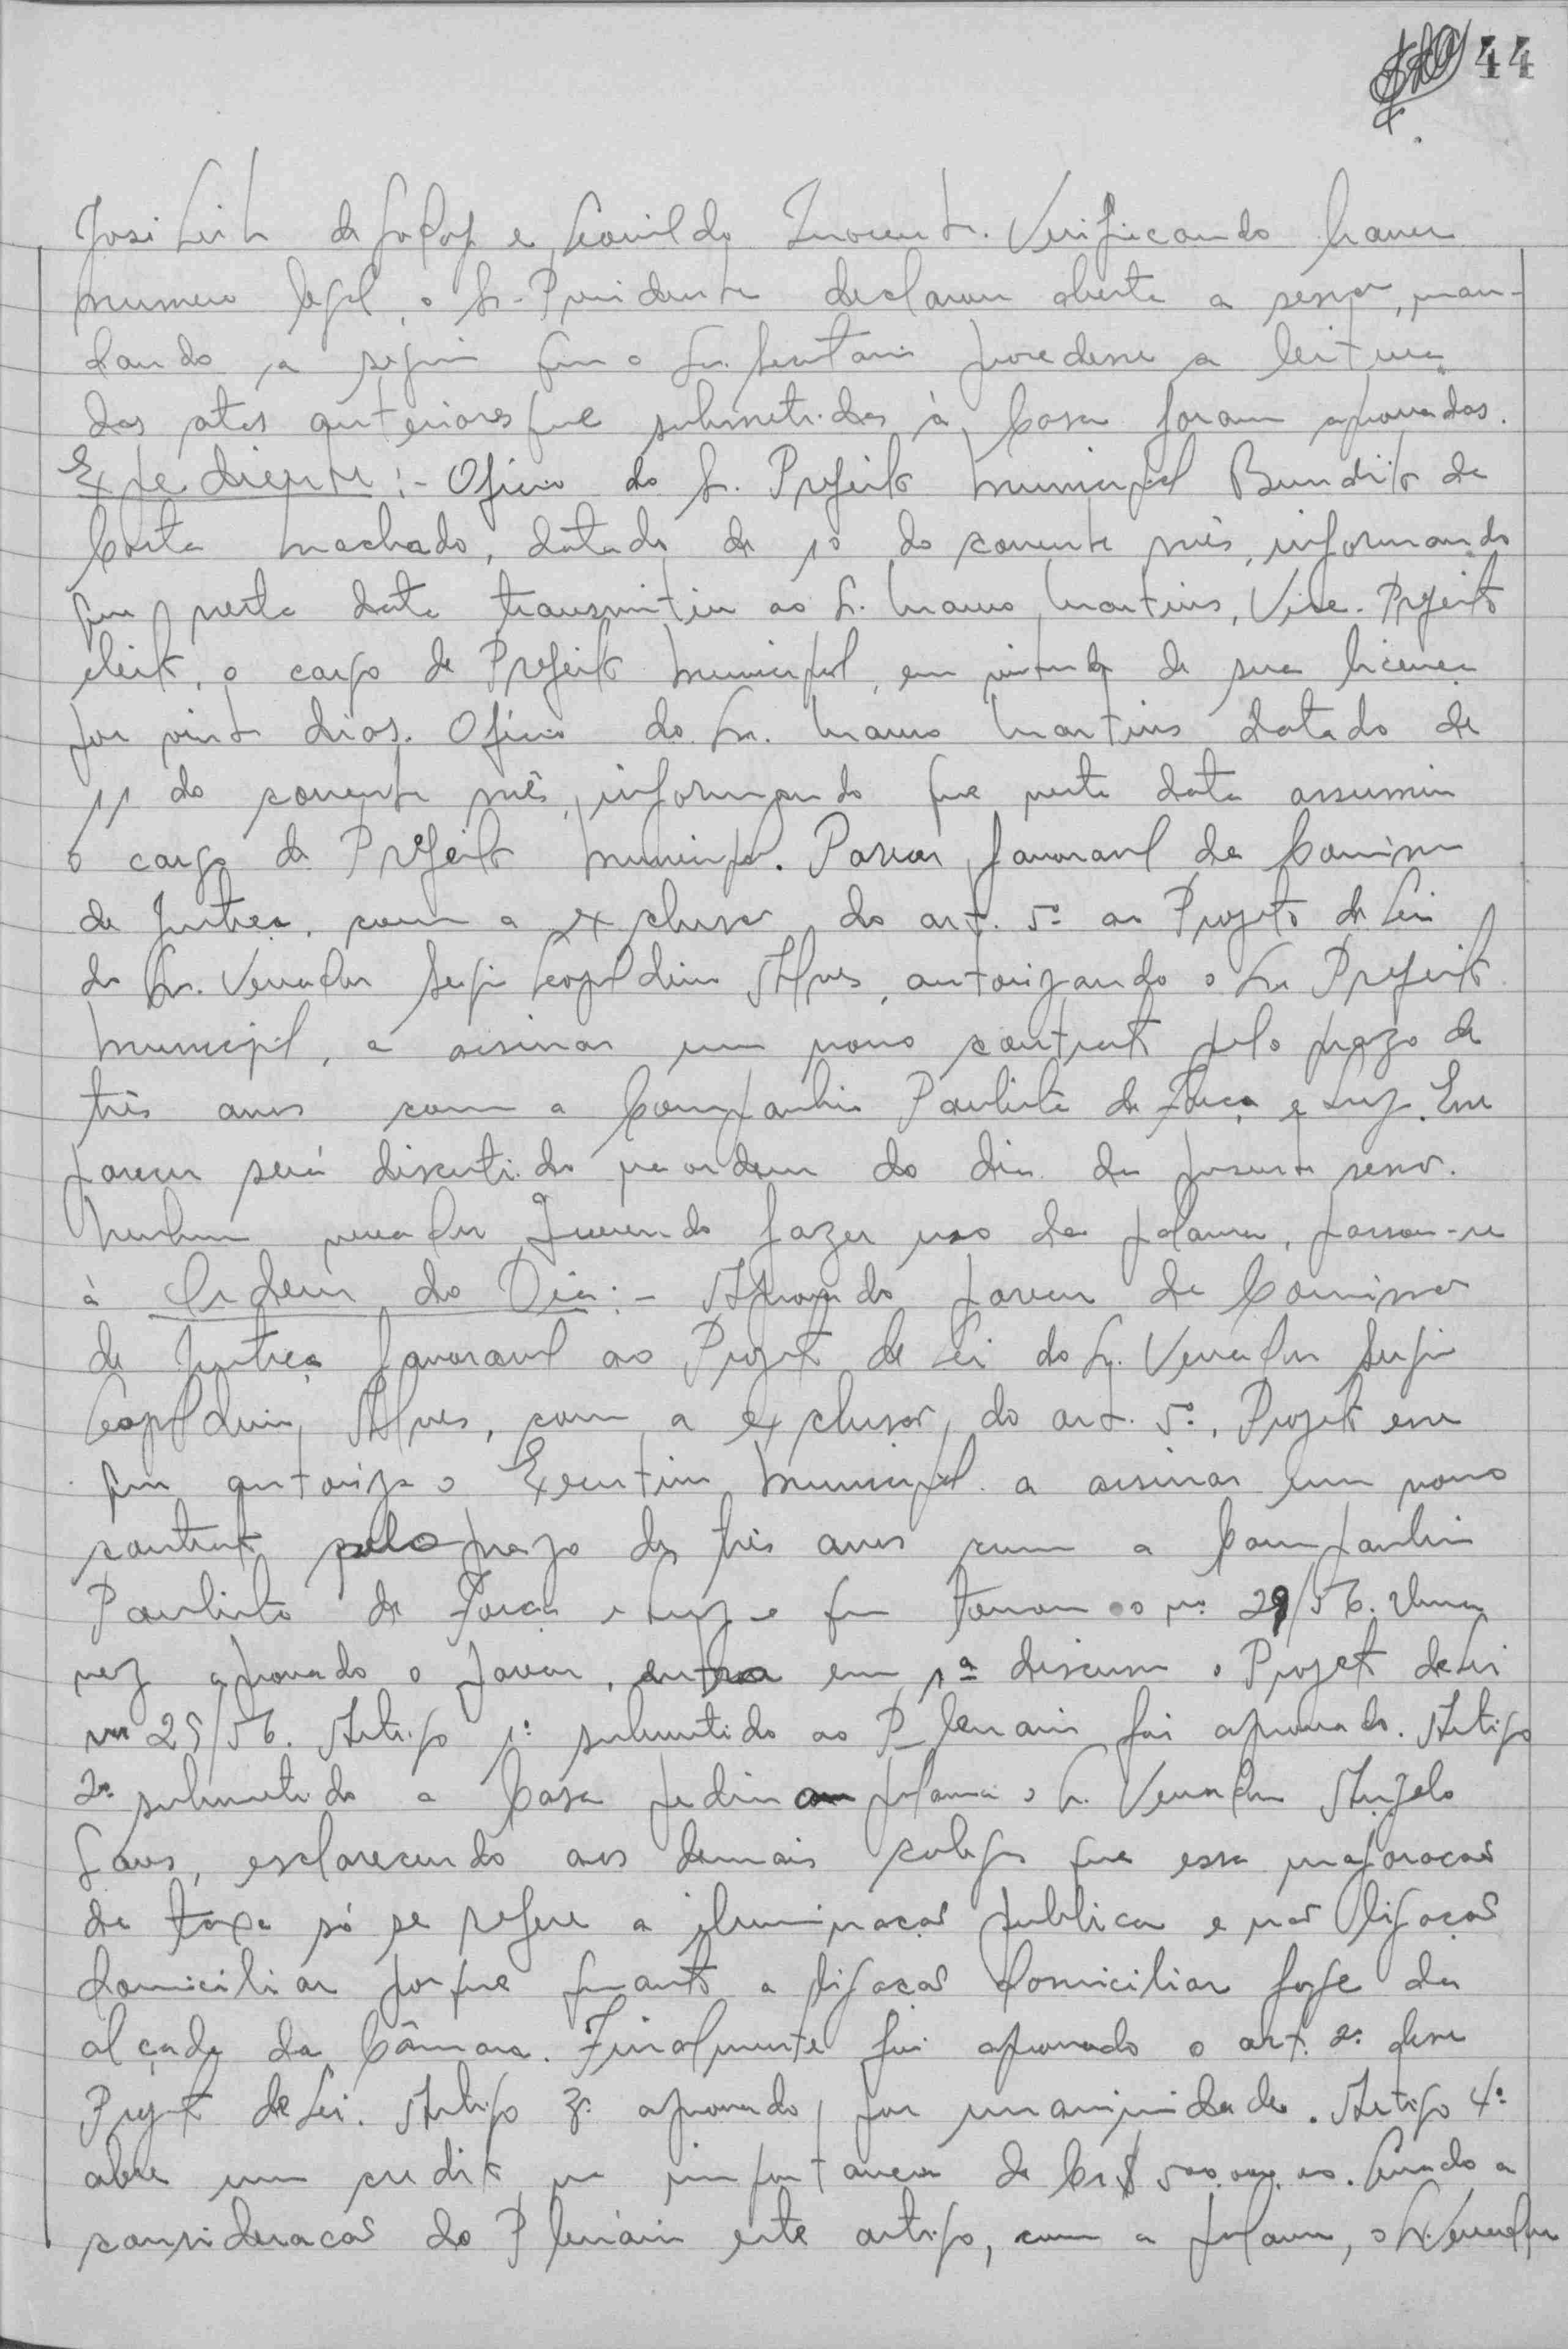 44
José Leite de Godoy e Leonildo Inocente. Verificando haver
numero legal, o Sr. Presidente declarou aberta a sessão, man-
dando, a seguir que o Sr. Secretario procedesse a leitura
das atas anteriores que submetidas à Casa foram aprovadas.
Expediente:- Oficio do Sr. Prefeito Municipal Benedito da
Costa Machado, datado de 1º do corrente mês, informando
que nesta data transmitiu ao Sr. Mauro Martins, Vice-Prefeito
eleito, o cargo de Prefeito Municipal, em virtude de sua licença
por vinte dias. Oficio do Sr. Mauro Martins datado de
11 do corrente mês, informando que nesta data assumiu
o cargo de Prefeito Municipal. Parecer favoravel da Comissão
de Justiça, com a exclusão do art. 5º ao Projeto de Lei
do Sr. Vereador Sergio Leopoldino Alves, autorizando o Sr. Prefeito
Municipal, a assinar um novo contrato pelo prazo de
três anos com a Companhia Paulista de Força e Luz. Esse
parecer será discutido na ordem do dia da presente sessão.
Nenhum vereador querendo fazer uso da palavra, passou-se
à Ordem do Dia:- Aprovado parecer da Comissão
de Justiça favoravel ao Projeto de Lei do Sr. Vereador Sergio
Leopoldino Alves, com a exclusão, do art. 5º, Projeto esse
que autoriza o Executivo Municipal a assinar um novo
contrato pelo prazo de três anos com a Companhia
Paulista de Força e Luz e que tomou o nº 29/56. Uma
vez aprovado o parecer, entra em 1ª discussão o Projeto de Lei
nº 29/56. Artigo 1º submetido ao Plenario foi aprovado. Artigo
2º submetido a Casa pediu a palavra o Sr. Vereador Angelo
esclarecendo aos demais colegas que essa majoração
de taxa só se refere a iluminação publica e não ligação
domiciliar porque quanto a ligação domiciliar foge da
alçada da Câmara. Finalmente foi aprovado o art. 2º desse
Projeto de Lei. Artigo 3º aprovado por unanimidade. Artigo 4º
abre um credito na importancia de Cr$ 500.000,00. Levado a
consideração do Plenário este artigo, com a palavra, o Sr. Vereador